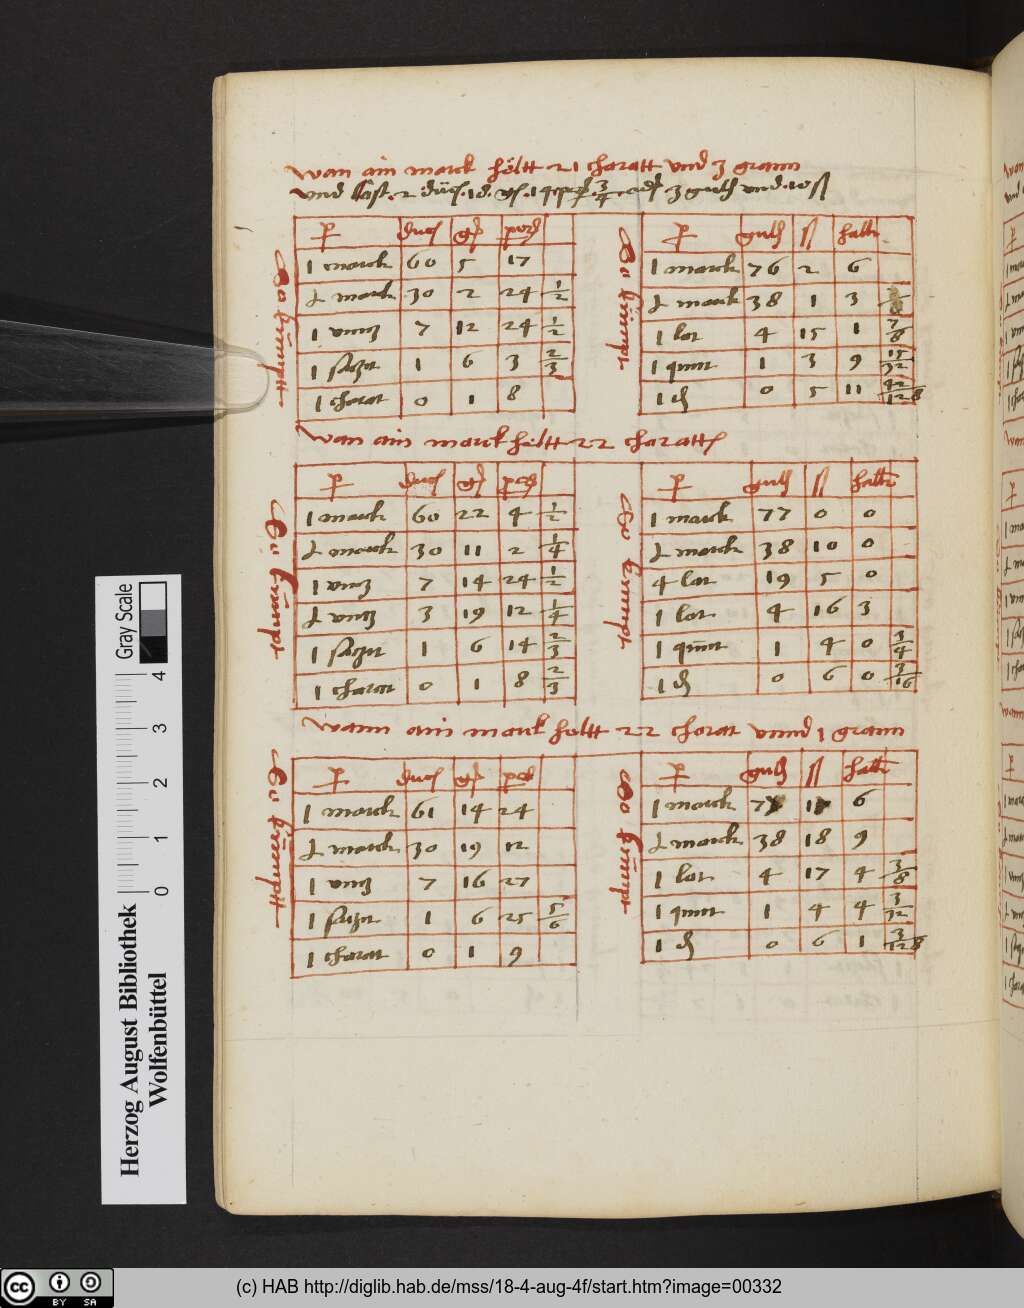 wan ain marck höltt 21 charatt und 3 grann
und 3 gulh und 10 ſſ
So kümptt
duc gſ
1 marck 60 5 17
½ marck 30 2 24 1/2
1 untz 7 12 24 1/2
1 1 6 3 2/3
1 charat 0 1 8
So kümpt
gulh ſſ hallr
1 marck 76 2 6
½ marck 38 1 3
1 lot 4 15 1 7/8
1 quint 1 3 9 15/32
1 ₰ 0 5 11
wan ain marck heltt 22 charatt
So kumpt
duc gſ
1 marck 60 22 4 1/2
½ marck 30 11 2 1/4
1 untz 7 14 24 1/2
½ untz 3 19 12 1/4
1 1 6 14 2/3
1 charat 0 1 8 2/3
So kumpt
gulh ſſ hallr
1 marck 77 0 0
½ marck 38 10 0
4 lot 19 5 0
1 lot 4 16 3
1 quint 1 4 0 3/4
1 ₰ 0 6 0 3/16
wann ain marck heltt 22 charat unnd 1 grann
So kümptt
duc gſ
1 marck 61 14 24
½ marck 30 19 12
1 untz 7 16 27
1 1 6 25 5/6
1 charat 0 1 9
So kümpt
gulh ſſ hallr
1 marck 6
½ marck 38 18 9
1 lot 4 17 4 3/8
1 quint 1 4 4 3/32
1 ₰ 0 6 1 3/128
Gray Scale
0 1 2 3 4
Herzog August Bibliothek
Wolfenbüttel
cc BY SA
(c) HAB http://diglib.hab.de/mss/18-4-aug-4f/start.htm?image=00332